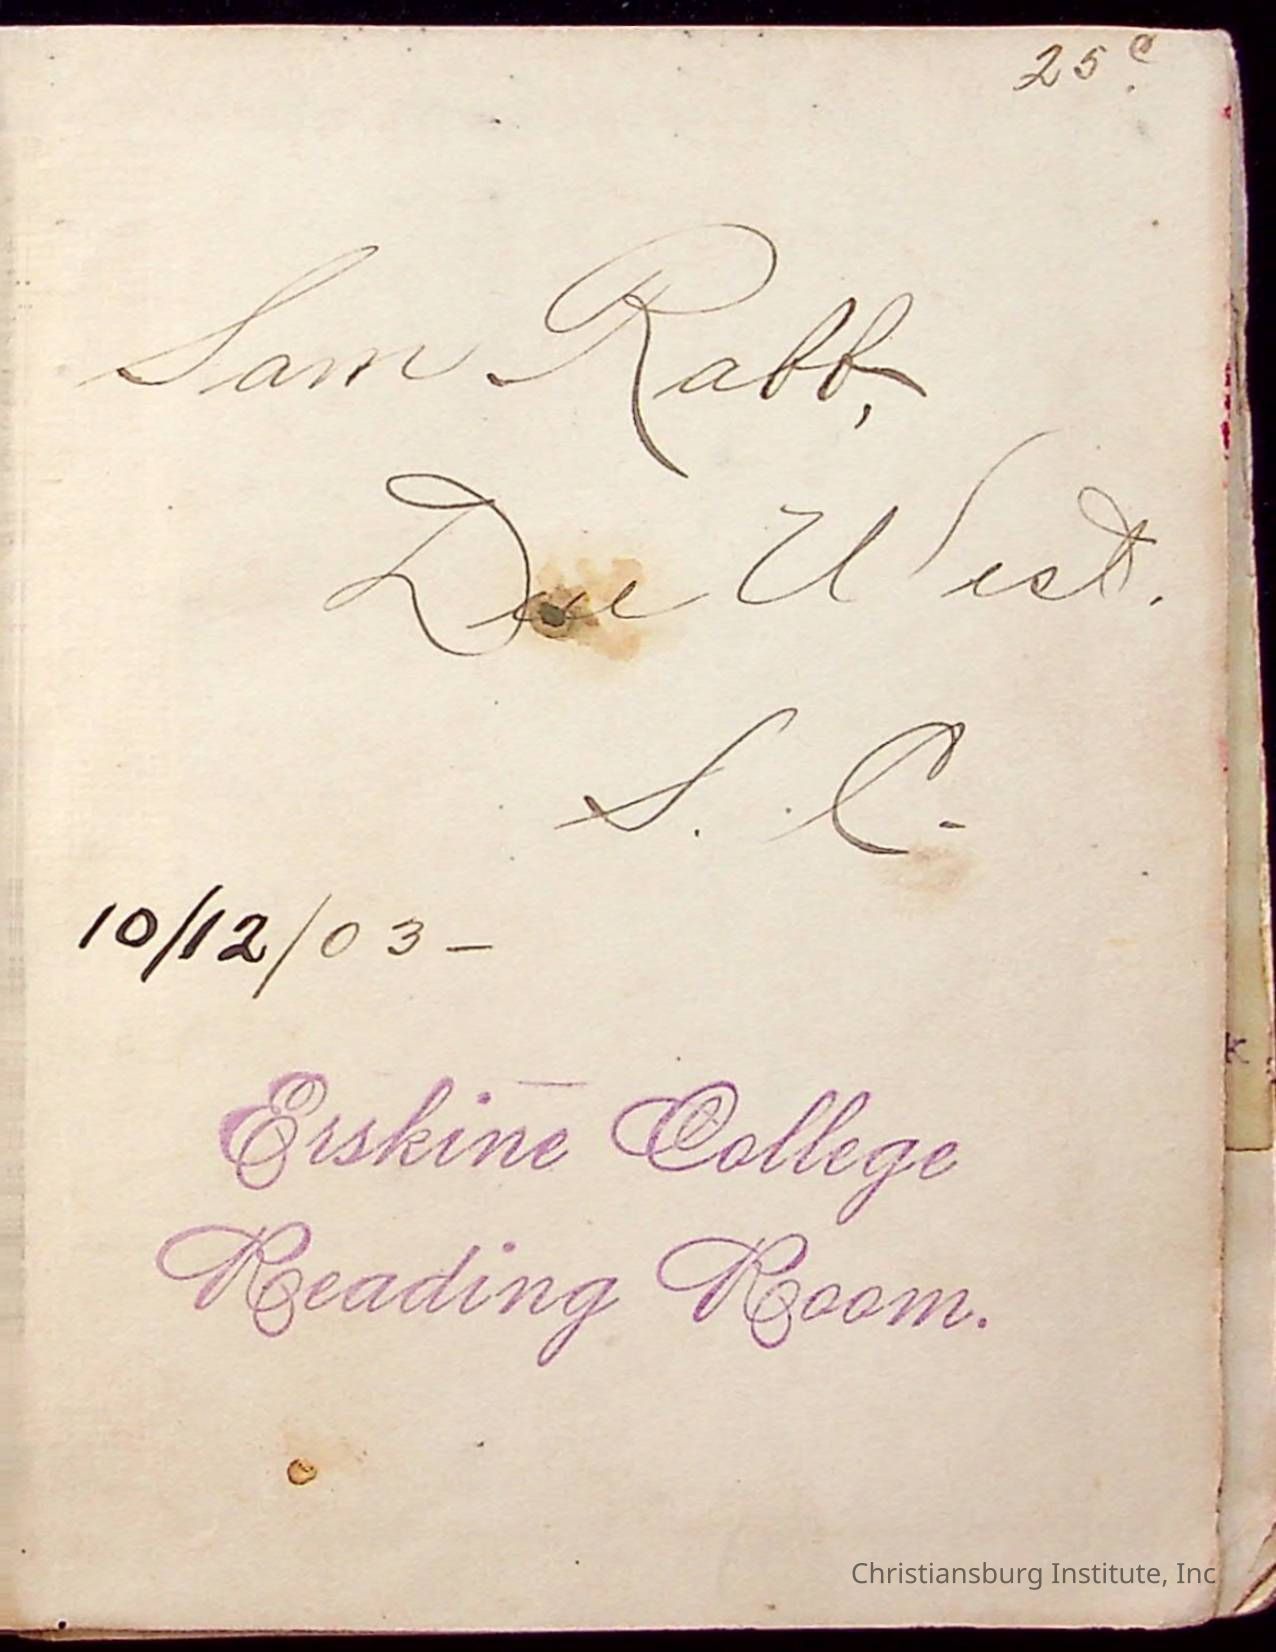 25c.
Sam Rabb,
Due West.
S. C.-
10/12/03-
Erskine College
Reading Room.
K
Christiansburg Institute, Inc